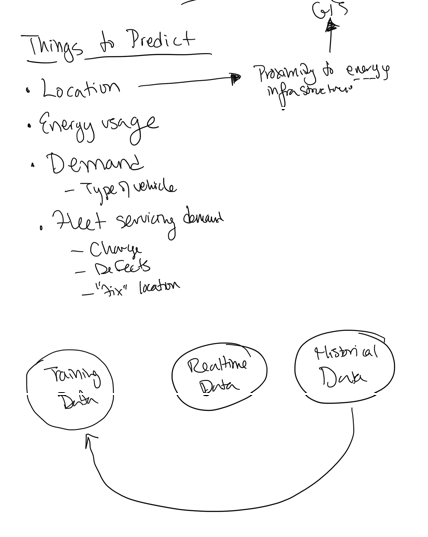 GIS
Things to Predict
Proximity to energy
infrastructure
• Location
• Energy usage
• Demand
– Type of vehicle
• Fleet servicing demand
– Charge
– Defects
– "Fix" location
Training
Data
Realtime
Data
Historical
Data